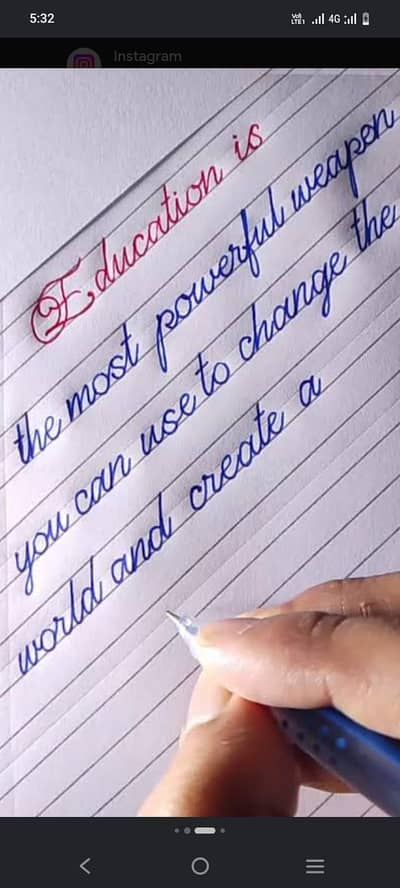 5:32
4G
Instagram
Education is
the most powerful weapen
you can use to change the
world and create a